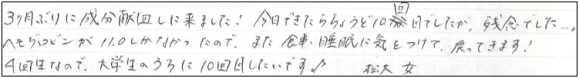 3ヶ月ぶりに成分献血しに来ました！今日できたらちょうど10回目でしたが、残念でした…。
ヘモグロビンが11.0しかなかったので、また食事・睡眠に気をつけて、戻ってきます！
4回生なので、大学生のうちに10回目したいです♪ 松大 女